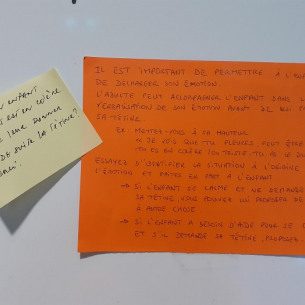 ENFANT
EST EN COLÈRE
LEUR DONNER
SUITE LA TÉTINE"
IL EST IMPORTANT DE PERMETTRE À L'EN
DE DÉCHARGER SON ÉMOTION.
L'ADULTE PEUT ACCOMPAGNER L'ENFANT DANS L
VERBALISATION DE SON ÉMOTION AVANT DE LUI
SA TÉTINE.
EX: METTEZ-VOUS À SA HAUTEUR
" JE VOIS QUE TU PLEURES PEUT ÊTRE
TU ES EN COLÈRE
ESSAYEZ D'IDENTIFIER LA SITUATION À L'ORIGINE
L'ÉMOTION ET FAITES EN PART À L'ENFANT
→ SI L'ENFANT SE CALME ET NE DEMANDE
SA TÉTINE, VOUS POUVEZ LUI PROPOSER DE
À AUTRE CHOSE
→ SI L'ENFANT A BESOIN D'AIDE POUR SE
ET S'IL DEMANDE SA TÉTINE, PROPOSER